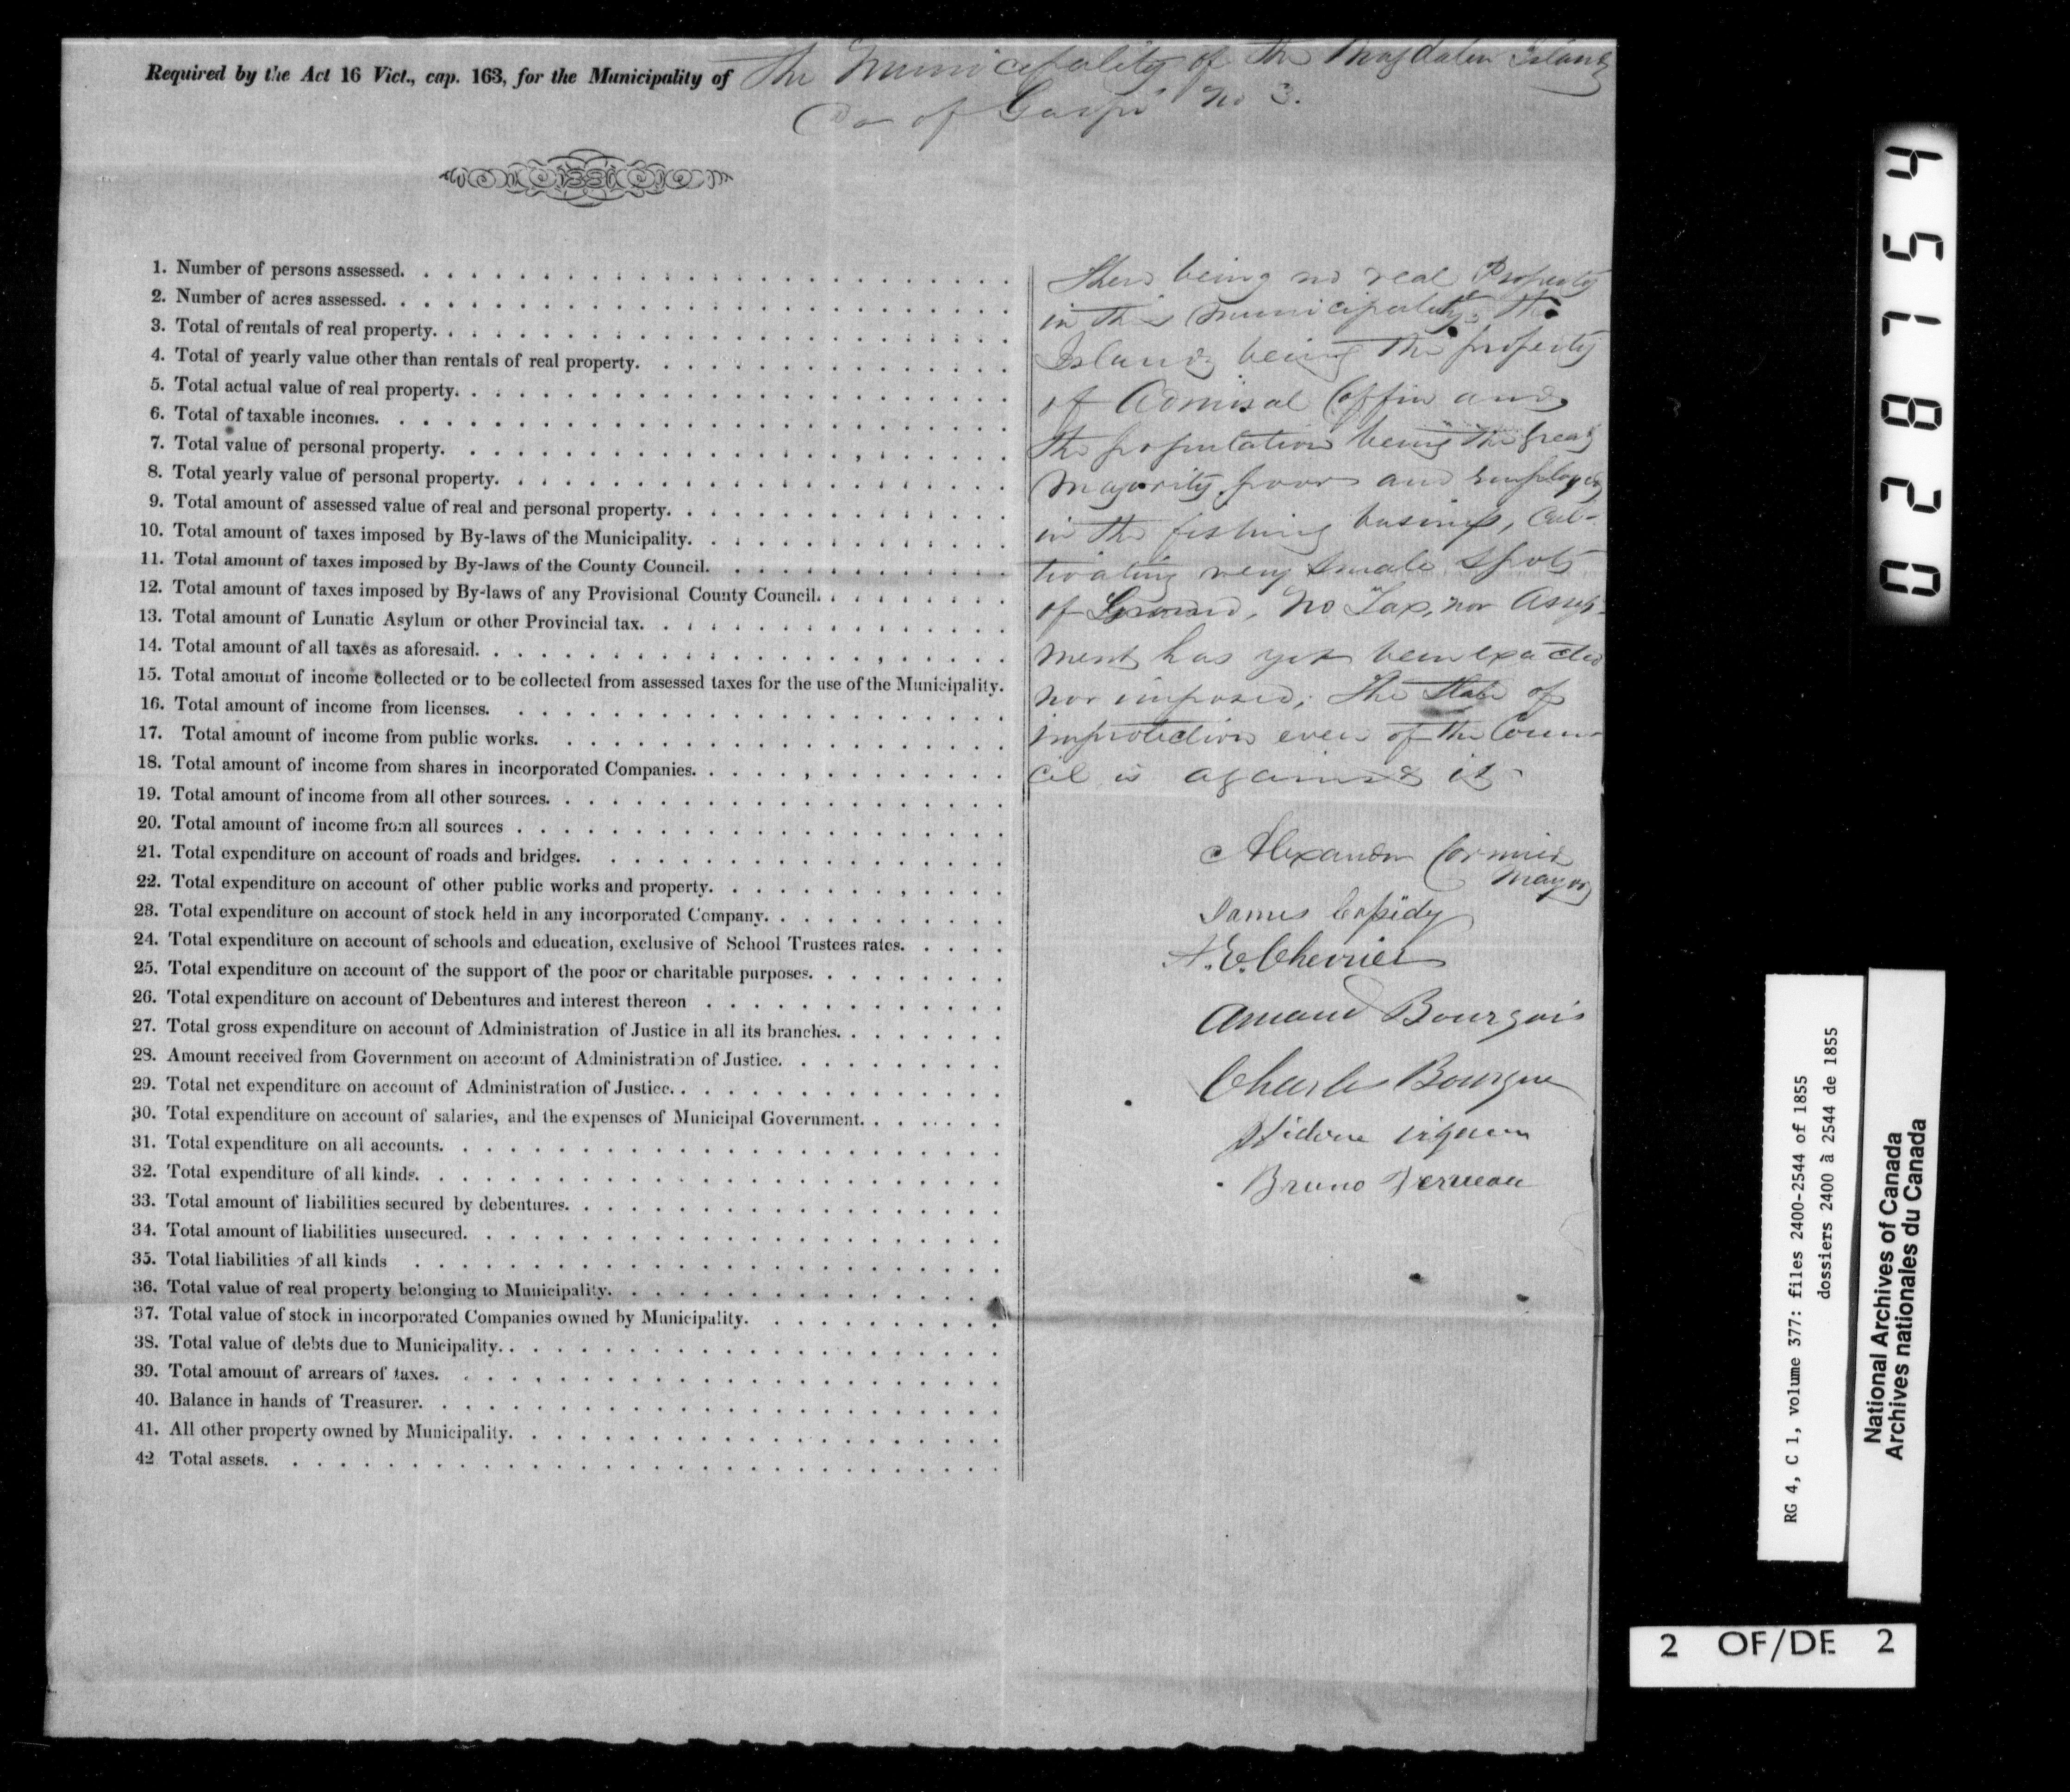 Required by the Act 16 Vict., cap. 163, for the Municipality of The Municipality of the Magdalen Islands
Co of Gaspé No 3.
1. Number of persons assessed.
2. Number of acres assessed.
3. Total of rentals of real property.
4. Total of yearly value other than rentals of real property.
5. Total actual value of real property.
6. Total of taxable incomes.
7. Total value of personal property.
8. Total yearly value of personal property.
9. Total amount of assessed value of real and personal property.
10. Total amount of taxes imposed by By-laws of the Municipality.
11. Total amount of taxes imposed by By-laws of the County Council.
12. Total amount of taxes imposed by By-laws of any Provisional County Council.
13. Total amount of Lunatic Asylum or other Provincial tax.
14. Total amount of all taxes as aforesaid.
15. Total amount of income collected or to be collected from assessed taxes for the use of the Municipality.
16. Total amount of income from licenses.
17. Total amount of income from public works.
18. Total amount of income from shares in incorporated Companies.
19. Total amount of income from all other sources.
20. Total amount of income from all sources
21. Total expenditure on account of roads and bridges.
22. Total expenditure on account of other public works and property.
23. Total expenditure on account of stock held in any incorporated Company.
24. Total expenditure on account of schools and education, exclusive of School Trustees rates.
25. Total expenditure on account of the support of the poor or charitable purposes.
26. Total expenditure on account of Debentures and interest thereon
27. Total gross expenditure on account of Administration of Justice in all its branches.
28. Amount received from Government on account of Administration of Justice.
29. Total net expenditure on account of Administration of Justice.
30. Total expenditure on account of salaries, and the expenses of Municipal Government.
31. Total expenditure on all accounts.
32. Total expenditure of all kinds.
33. Total amount of liabilities secured by debentures.
34. Total amount of liabilities unsecured.
35. Total liabilities of all kinds
36. Total value of real property belonging to Municipality.
37. Total value of stock in incorporated Companies owned by Municipality.
38. Total value of debts due to Municipality.
39. Total amount of arrears of taxes.
40. Balance in hands of Treasurer.
41. All other property owned by Municipality.
42 Total assets.
There being no real Property
in this Municipality, the
Islands being the property
of Admiral Coffin and
the population being the great
Majority poor and employed
in the fishing business, Cul-
tivating very small spots
of Ground, No Tax, nor Assess-
ment has yet been exacted
nor imposed; The State of
even of the Coun-
cil is against it
Alexander Cormier
Mayor
James Cassidy
A. E. Chevrier
Amand Bourgois
Charles Bourque
Bruno Terreau
028754
RG 4, C 1, volume 377: files 2400-2544 of 1855
dossiers 2400 à 2544 de 1855
National Archives of Canada
Archives nationales du Canada
2 OF/DE 2